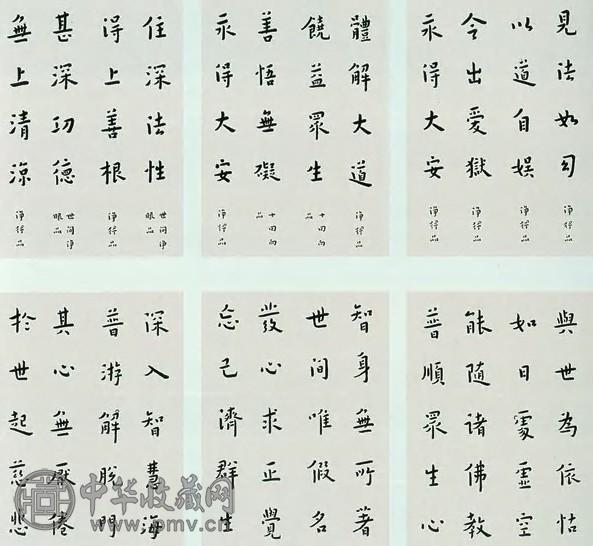 見法如幻 淨行品
以道自娛 淨行品
令出愛獄 淨行品
永得大安 淨行品
體解大道 淨行品
饒益眾生 十回向品
善悟無礙 十回向品
永得大安 淨行品
住深法性 世间淨眼品
得上善根 淨行品
甚深功德 世间淨眼品
無上清涼 淨行品
與世為依怙
如日處虛空
能隨諸佛教
普順眾生心
智身無所著
世间唯假名
發心求正覺
忘己濟群生
深入智慧海
普游解脫門
其心無厭倦
於世起慈悲
中华收藏网
www.pmv.cn